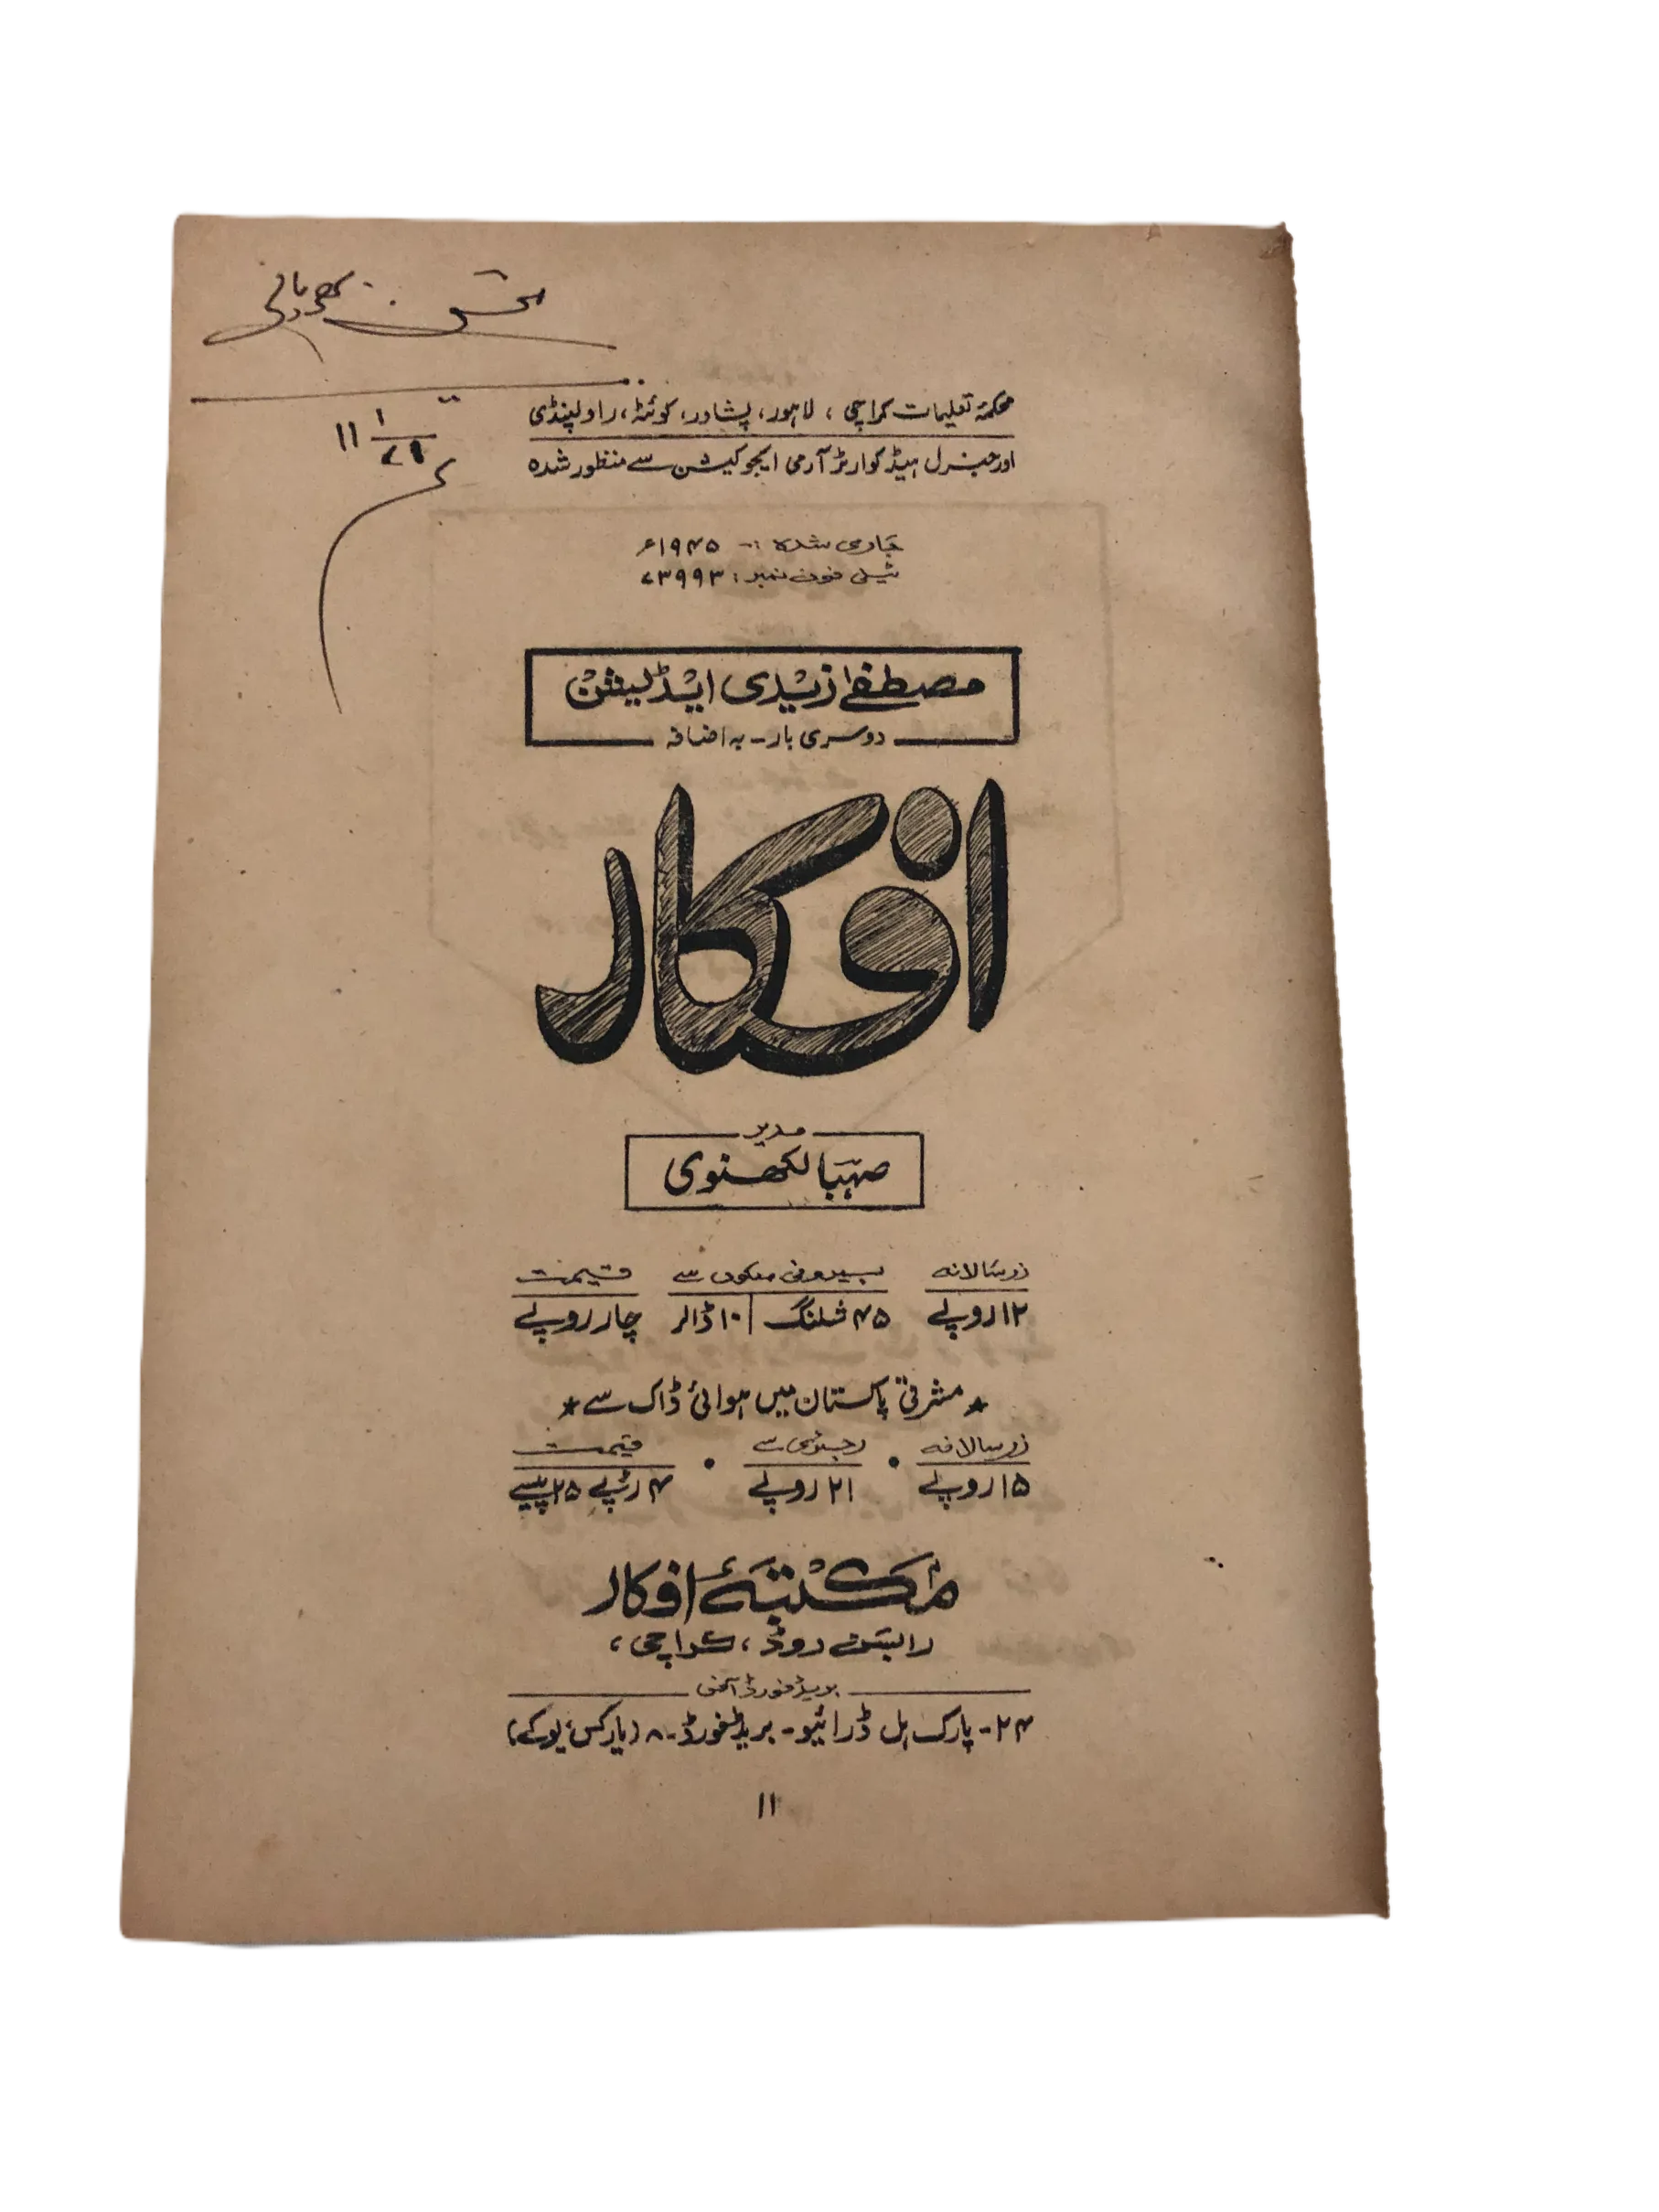 بھوپالی
۱۱
محکمۂ تعلیمات کراچی، لاہور، پشاور، کوئٹہ، راولپنڈی
اور جنرل ہیڈ کوارٹر آرمی ایجوکیشن سے منظور شدہ
جاری شدہ :- ۱۹۴۵ء
ٹیلی فون نمبر: ۷۳۹۹۳
مصطفےٰ زیدی ایڈیشن
دوسری بار - بہ اضافہ
افکار
مدیر
صہبا لکھنوی
زر سالانہ بیرونی ملکوں سے قیمت
۱۲ روپے ۴۵ شلنگ | ۱۰ ڈالر چار روپے
★ مشرقی پاکستان میں ہوائی ڈاک سے ★
زر سالانہ • رجسٹری سے • قیمت
۱۵ روپے ۲۱ روپے ۴ روپے ۲۵ پیسے
مکتبۂ افکار
رابسن روڈ، کراچی،
بریڈ فورڈ آفس
۲۴- پارک ہل ڈرائیو - بریڈ فورڈ - ۸ (یارکس، یو کے)
۱۱